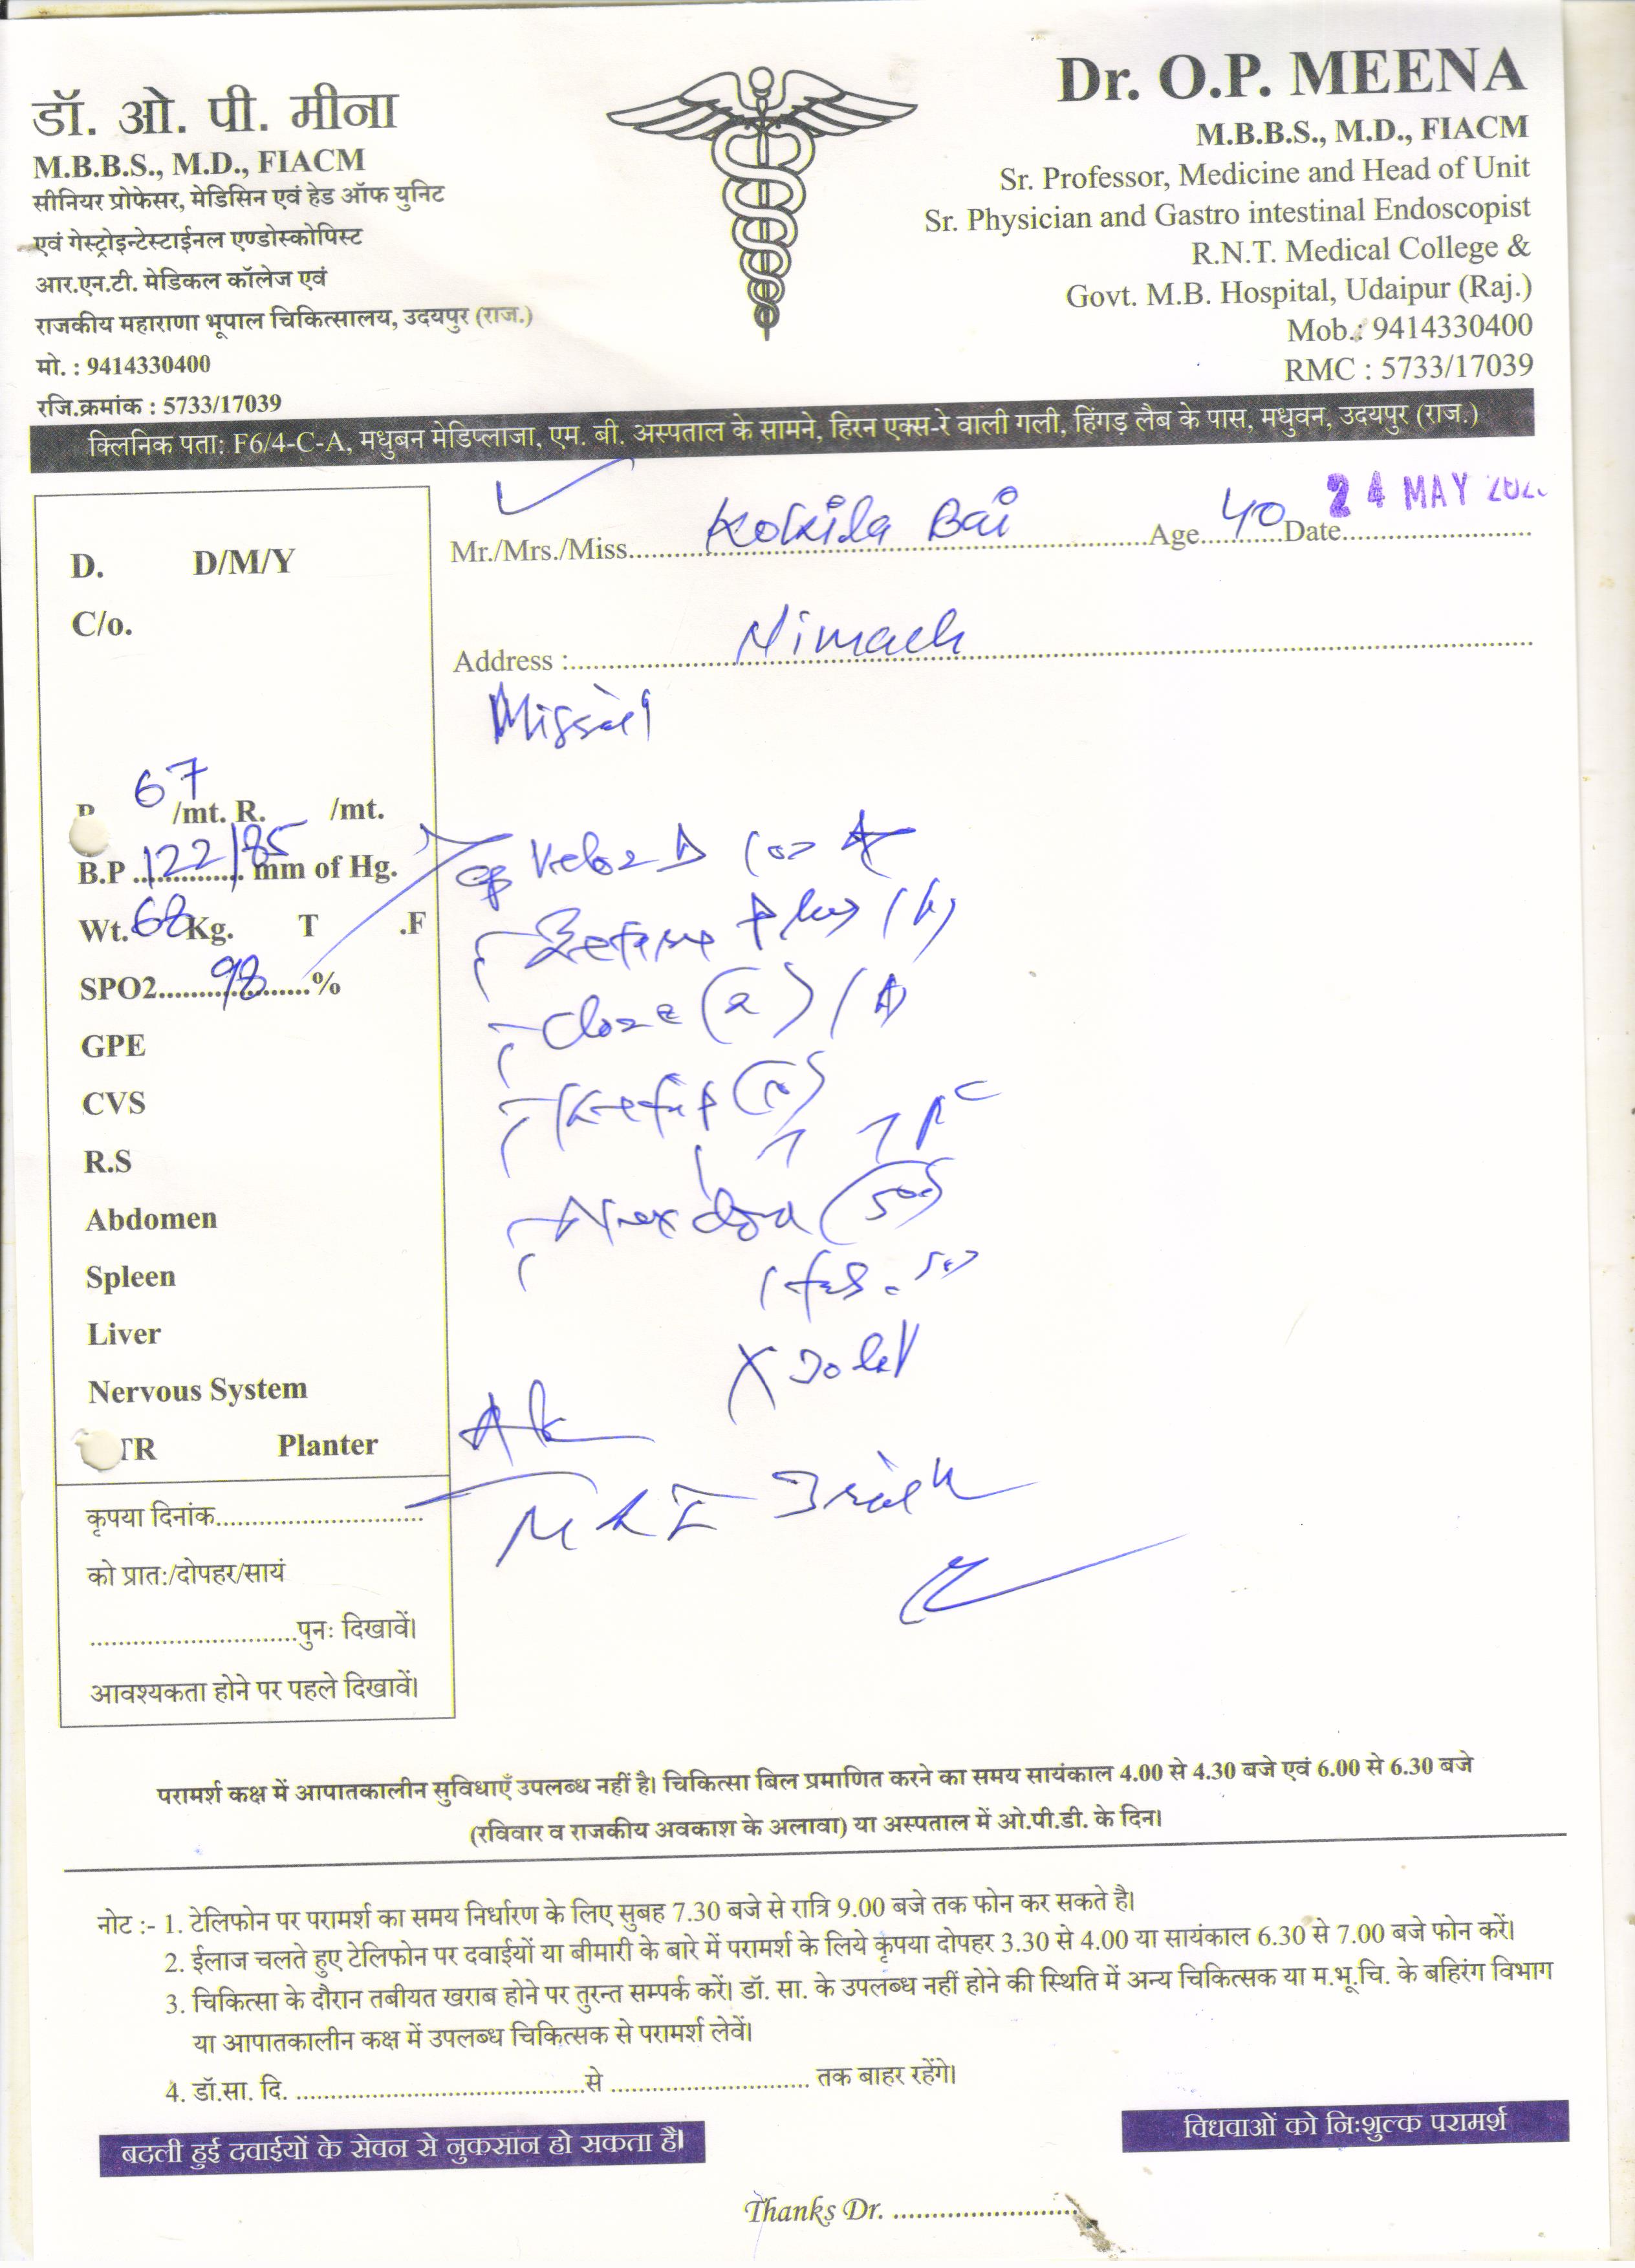 डॉ. ओ. पी. मीना
M.B.B.S., M.D., FIACM
सीनियर प्रोफेसर, मेडिसिन एवं हेड ऑफ युनिट
एवं गेस्ट्रोइन्टेस्टाईनल एण्डोस्कोपिस्ट
आर.एन.टी. मेडिकल कॉलेज एवं
राजकीय महाराणा भूपाल चिकित्सालय, उदयपुर (राज.)
मो. : 9414330400
रजि.क्रमांक : 5733/17039
Dr. O.P. MEENA
M.B.B.S., M.D., FIACM
Sr. Professor, Medicine and Head of Unit
Sr. Physician and Gastro intestinal Endoscopist
R.N.T. Medical College &
Govt. M.B. Hospital, Udaipur (Raj.)
Mob.: 9414330400
RMC : 5733/17039
क्लिनिक पता: F6/4-C-A, मधुबन मेडिप्लाजा, एम. बी. अस्पताल के सामने, हिरन एक्स-रे वाली गली, हिंगड़ लैब के पास, मधुवन, उदयपुर (राज.)
Mr./Mrs./Miss. Kokila Bai Age 40 Date 24 MAY
Address : Nimach
D. D/M/Y
C/o.
67 /mt. R. /mt.
B.P 122/85 mm of Hg.
Wt. 68 Kg. T .F
SPO2 98 %
GPE
CVS
R.S
Abdomen
Spleen
Liver
Nervous System
TR Planter
कृपया दिनांक
को प्रातः/दोपहर/सायं
पुनः दिखावें।
आवश्यकता होने पर पहले दिखावें।
Plus
(500)
परामर्श कक्ष में आपातकालीन सुविधाएँ उपलब्ध नहीं है। चिकित्सा बिल प्रमाणित करने का समय सायंकाल 4.00 से 4.30 बजे एवं 6.00 से 6.30 बजे
(रविवार व राजकीय अवकाश के अलावा) या अस्पताल में ओ.पी.डी. के दिन।
नोट :- 1. टेलिफोन पर परामर्श का समय निर्धारण के लिए सुबह 7.30 बजे से रात्रि 9.00 बजे तक फोन कर सकते है।
2. ईलाज चलते हुए टेलिफोन पर दवाईयों या बीमारी के बारे में परामर्श के लिये कृपया दोपहर 3.30 से 4.00 या सायंकाल 6.30 से 7.00 बजे फोन करें।
3. चिकित्सा के दौरान तबीयत खराब होने पर तुरन्त सम्पर्क करें। डॉ. सा. के उपलब्ध नहीं होने की स्थिति में अन्य चिकित्सक या म.भू.चि. के बहिरंग विभाग
या आपातकालीन कक्ष में उपलब्ध चिकित्सक से परामर्श लेवें।
4. डॉ.सा. दि. से तक बाहर रहेंगे।
बदली हुई दवाईयों के सेवन से नुकसान हो सकता है।
विधवाओं को निःशुल्क परामर्श
Thanks Dr.